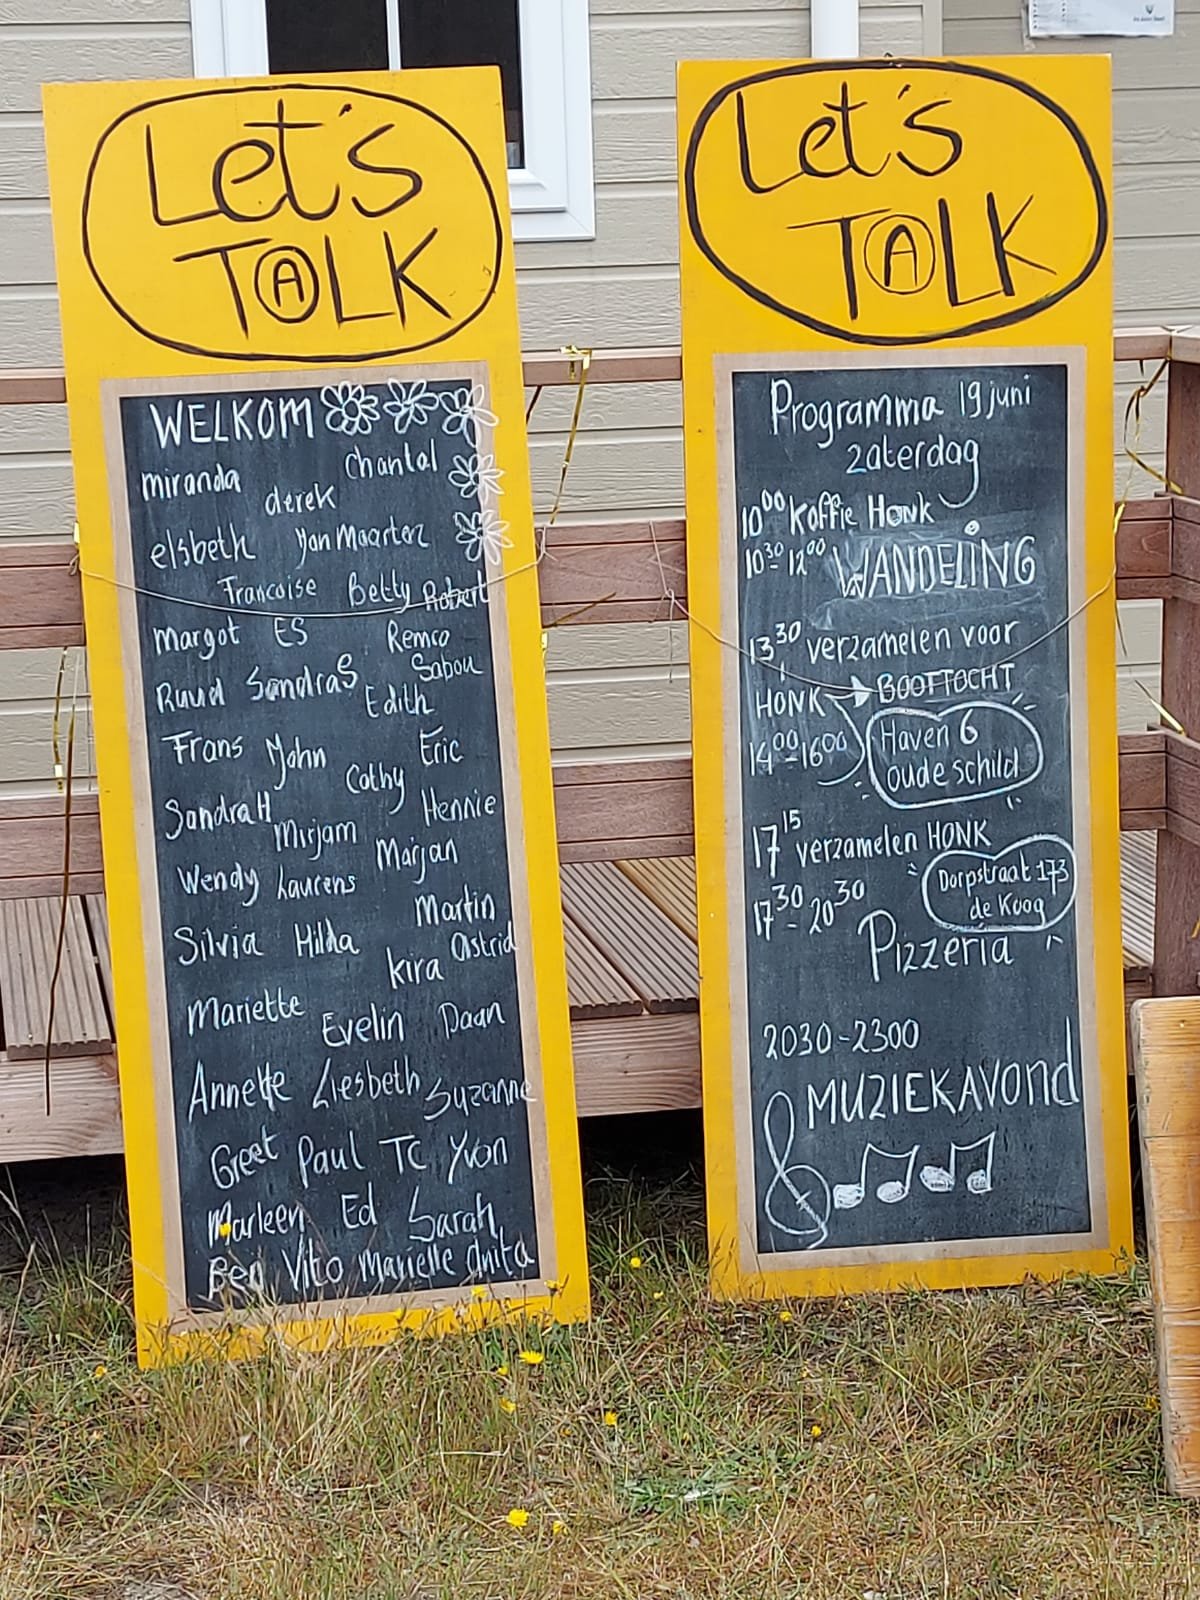 Let's
TALK
WELKOM
miranda chantal
derek
elsbeth Jan Maarten
Francoise Betty Robert
Margot ES Remco
Ruud SandraS Sabou
Edith
Frans John Eric
Cathy
SandraH Hennie
Mirjam Marjan
Wendy Laurens
Martin
Silvia Hilda Astrid
Kira
Mariette Evelin Daan
Annette Liesbeth Suzanne
Greet Paul TC Yvon
Marleen Ed Sarah
Ben Vito Mariëlle Anita
Let's
TALK
Programma 19 juni
zaterdag
10⁰⁰ Koffie Honk
10³⁰-12⁰⁰ WANDELING
13³⁰ verzamelen voor
HONK BOOTTOCHT
14⁰⁰-16⁰⁰ Haven 6
oude schild
17¹⁵ verzamelen HONK
17³⁰-20³⁰ Dorpstraat 173
de Koog
Pizzeria
2030-2300
MUZIEKAVOND